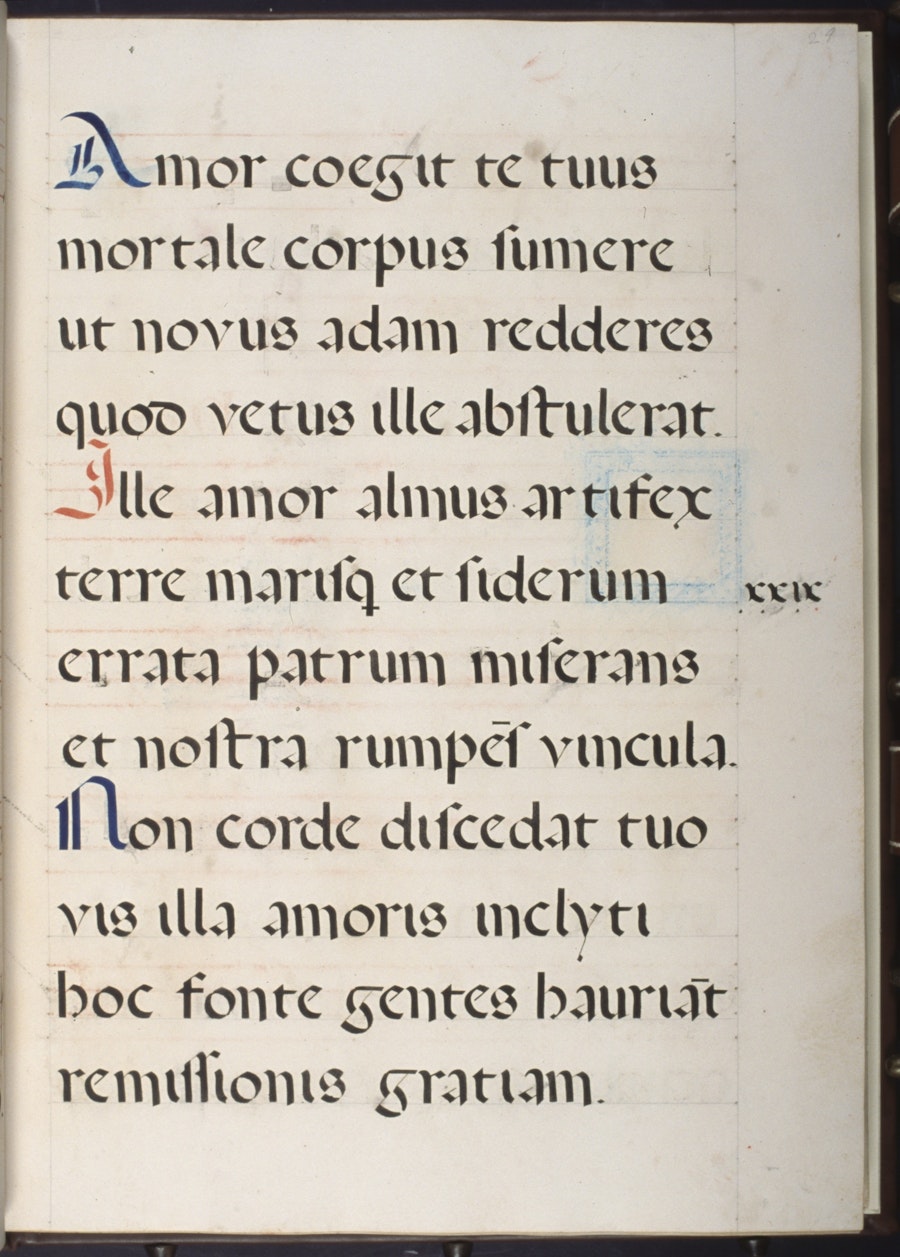 29
Amor coegit te tuus
mortale corpus ſumere
ut novus adam redderes
quod vetus ille abſtulerat.
Ille amor almus artifex
terre mariſq et ſiderum
xxix
errata patrum miſerans
et noſtra rumpēſ vincula.
Non corde diſcedat tuo
vis illa amoris inclyti
hoc fonte gentes hauriāt
remiſſionis gratiam.